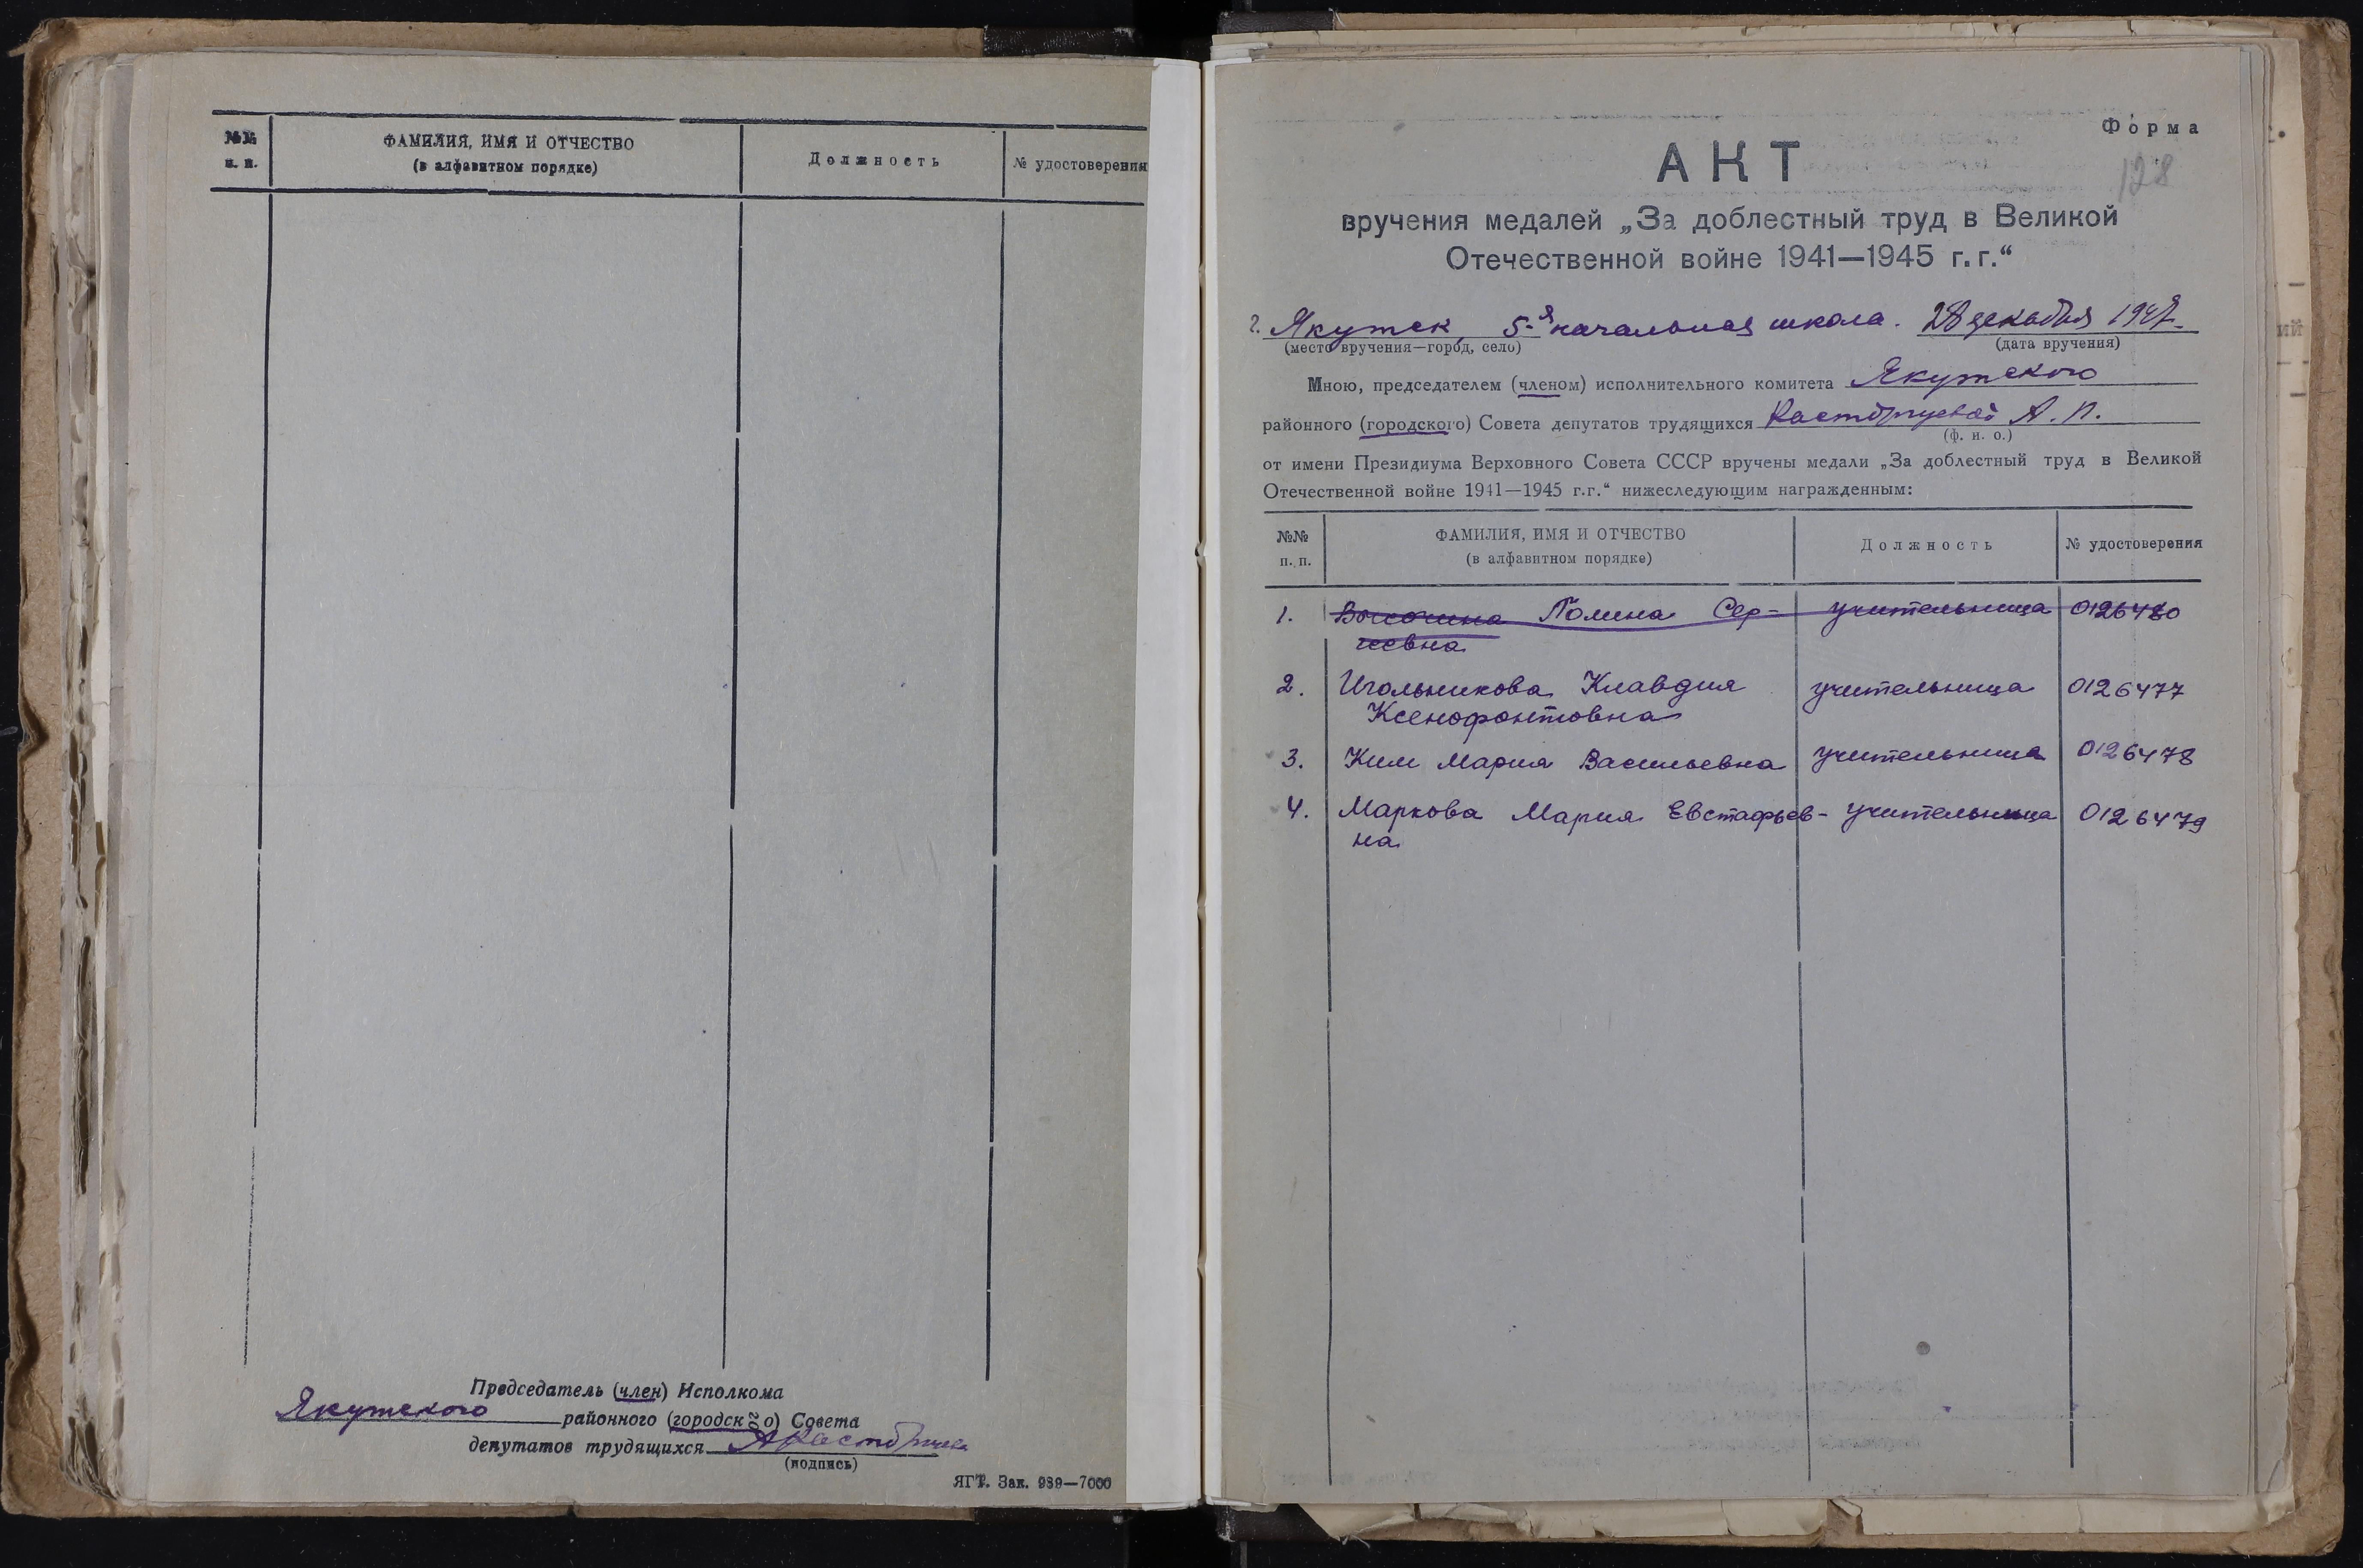 №№
п. п.
ФАМИЛИЯ, ИМЯ И ОТЧЕСТВО
(в алфавитном порядке)
Должность
№ удостоверения
Председатель (член) Исполкома
Якутского районного (городского) Совета
депутатов трудящихся
(подпись)
ЯГТ. Зак. 989—7000
Форма
128
АКТ
вручения медалей „За доблестный труд в Великой
Отечественной войне 1941—1945 г.г.“
г. Якутск, 5-я начальная школа. 28 декабря
(место вручения—город, село)
(дата вручения)
Мною, председателем (членом) исполнительного комитета Якутского
районного (городского) Совета депутатов трудящихся Кастырцевой А. П.
(ф. и. о.)
от имени Президиума Верховного Совета СССР вручены медали „За доблестный труд в Великой
Отечественной войне 1941—1945 г.г.“ нижеследующим награжденным:
№№
п. п.
ФАМИЛИЯ, ИМЯ И ОТЧЕСТВО
(в алфавитном порядке)
Должность
№ удостоверения
1. Высочина Полина Сер- учительница 0126480
геевна
2. Игольникова Клавдия учительница 0126477
Ксенофонтовна
3. Ким Мария Васильевна учительница 0126478
4. Маркова Мария Евстафьев- учительница 0126479
на